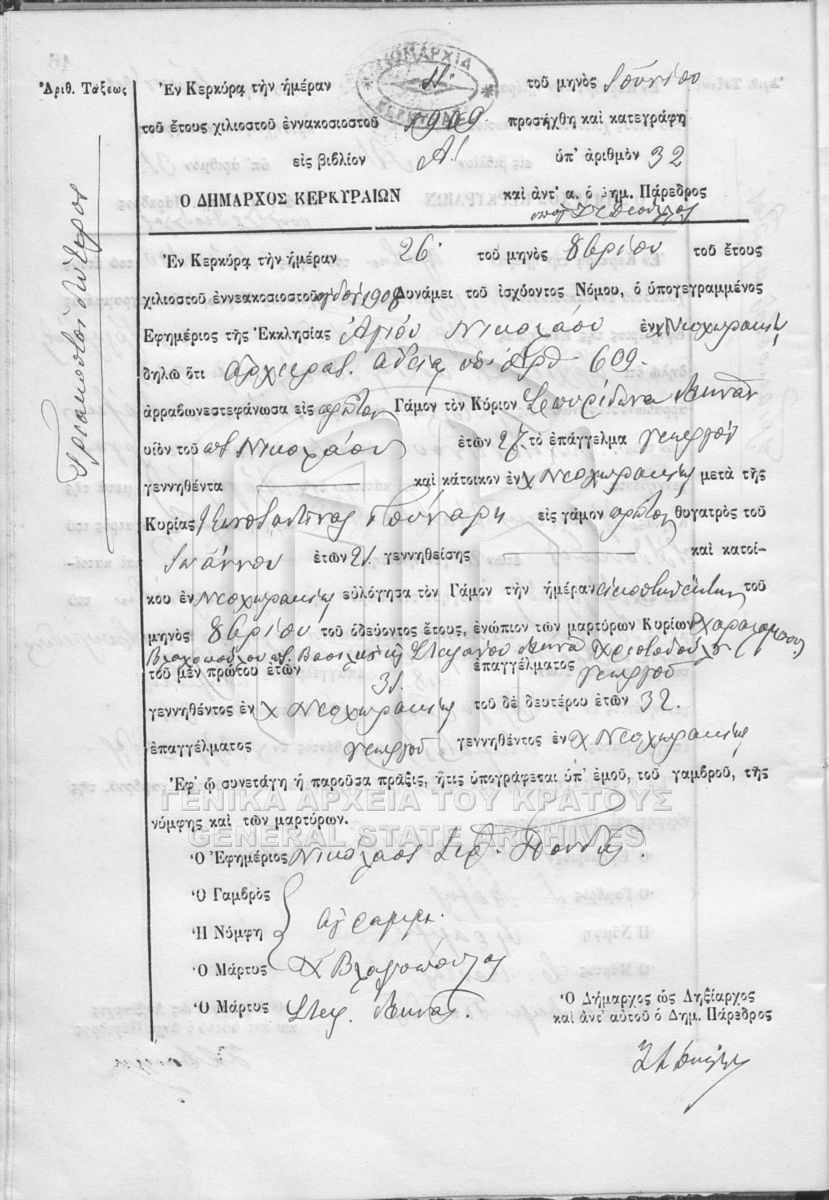 Ἀριθ. Τάξεως
Τριακοστὸν δεύτερος
ΝΟΜΑΡΧΙΑ
ΚΕΡΚΥΡΑΣ
Ἐν Κερκύρᾳ τὴν ἡμέραν τοῦ μηνὸς Ἰουνίου
τοῦ ἔτους χιλιοστοῦ ἐννακοσιοστοῦ 1909 προσήχθη καὶ κατεγράφη
εἰς βιβλίον Α! ὑπ' ἀριθμὸν 32
Ο ΔΗΜΑΡΧΟΣ ΚΕΡΚΥΡΑΙΩΝ καὶ ἀντ' α. ὁ Δημ. Πάρεδρος
Ἐν Κερκύρᾳ τὴν ἡμέραν 26 τοῦ μηνὸς 8βρίου τοῦ ἔτους
χιλιοστοῦ ἐννεακοσιοστοῦ 1908 Δυνάμει τοῦ ἰσχύοντος Νόμου, ὁ ὑπογεγραμμένος
Ἐφημέριος τῆς Ἐκκλησίας Ἁγίου Νικολάου ἐν χ Νεοχωρακίῳ
δηλῶ ὅτι Ἀρχιερατ. ἀδείᾳ ὑπ. Ἀρθ 609.
ἀρραβωνεστεφάνωσα εἰς πρῶτον Γάμον τὸν Κύριον Σπυρίδωνα
υἱὸν τοῦ Νικολάου ἐτῶν 27 τὸ ἐπάγγελμα γεωργοῦ
γεννηθέντα καὶ κάτοικον ἐν χ Νεοχωρακίῳ μετὰ τῆς
Κυρίας Κωνσταντίνας εἰς γάμον πρῶτον θυγατρὸς τοῦ
Ἰωάννου ἐτῶν 21 γεννηθείσης καὶ κατοί-
κου ἐν Νεοχωρακίῳ εὐλόγησα τὸν Γάμον τὴν ἡμέραν εἰκοστὴν ἕκτην τοῦ
μηνὸς 8βρίου τοῦ ὁδεύοντος ἔτους, ἐνώπιον τῶν μαρτύρων Κυρίων Χαραλάμπους
Βλαχοπούλου Βασιλείου Στεφάνου Χριστοδούλου
τοῦ μὲν πρώτου ἐτῶν 31. ἐπαγγέλματος γεωργοῦ
γεννηθέντος ἐν χ Νεοχωρακίῳ τοῦ δὲ δευτέρου ἐτῶν 32.
ἐπαγγέλματος γεωργοῦ γεννηθέντος ἐν χ Νεοχωρακίῳ
Ἐφ' ᾧ συνετάγη ἡ παροῦσα πρᾶξις, ἥτις ὑπογράφεται ὑπ' ἐμοῦ, τοῦ γαμβροῦ, τῆς
ΓΕΝΙΚΑ ΑΡΧΕΙΑ ΤΟΥ ΚΡΑΤΟΥΣ
νύμφης καὶ τῶν μαρτύρων.
GENERAL STATE ARCHIVES
Ὁ Ἐφημέριος Νικόλαος
Ὁ Γαμβρὸς
Ἡ Νύμφη ἀγράμμ.
Ὁ Μάρτυς Χ Βλαχοπουλος
Ὁ Μάρτυς Στεφ.
Ὁ Δήμαρχος ὡς Ληξίαρχος
καὶ ἀντ' αὐτοῦ ὁ Δημ. Πάρεδρος